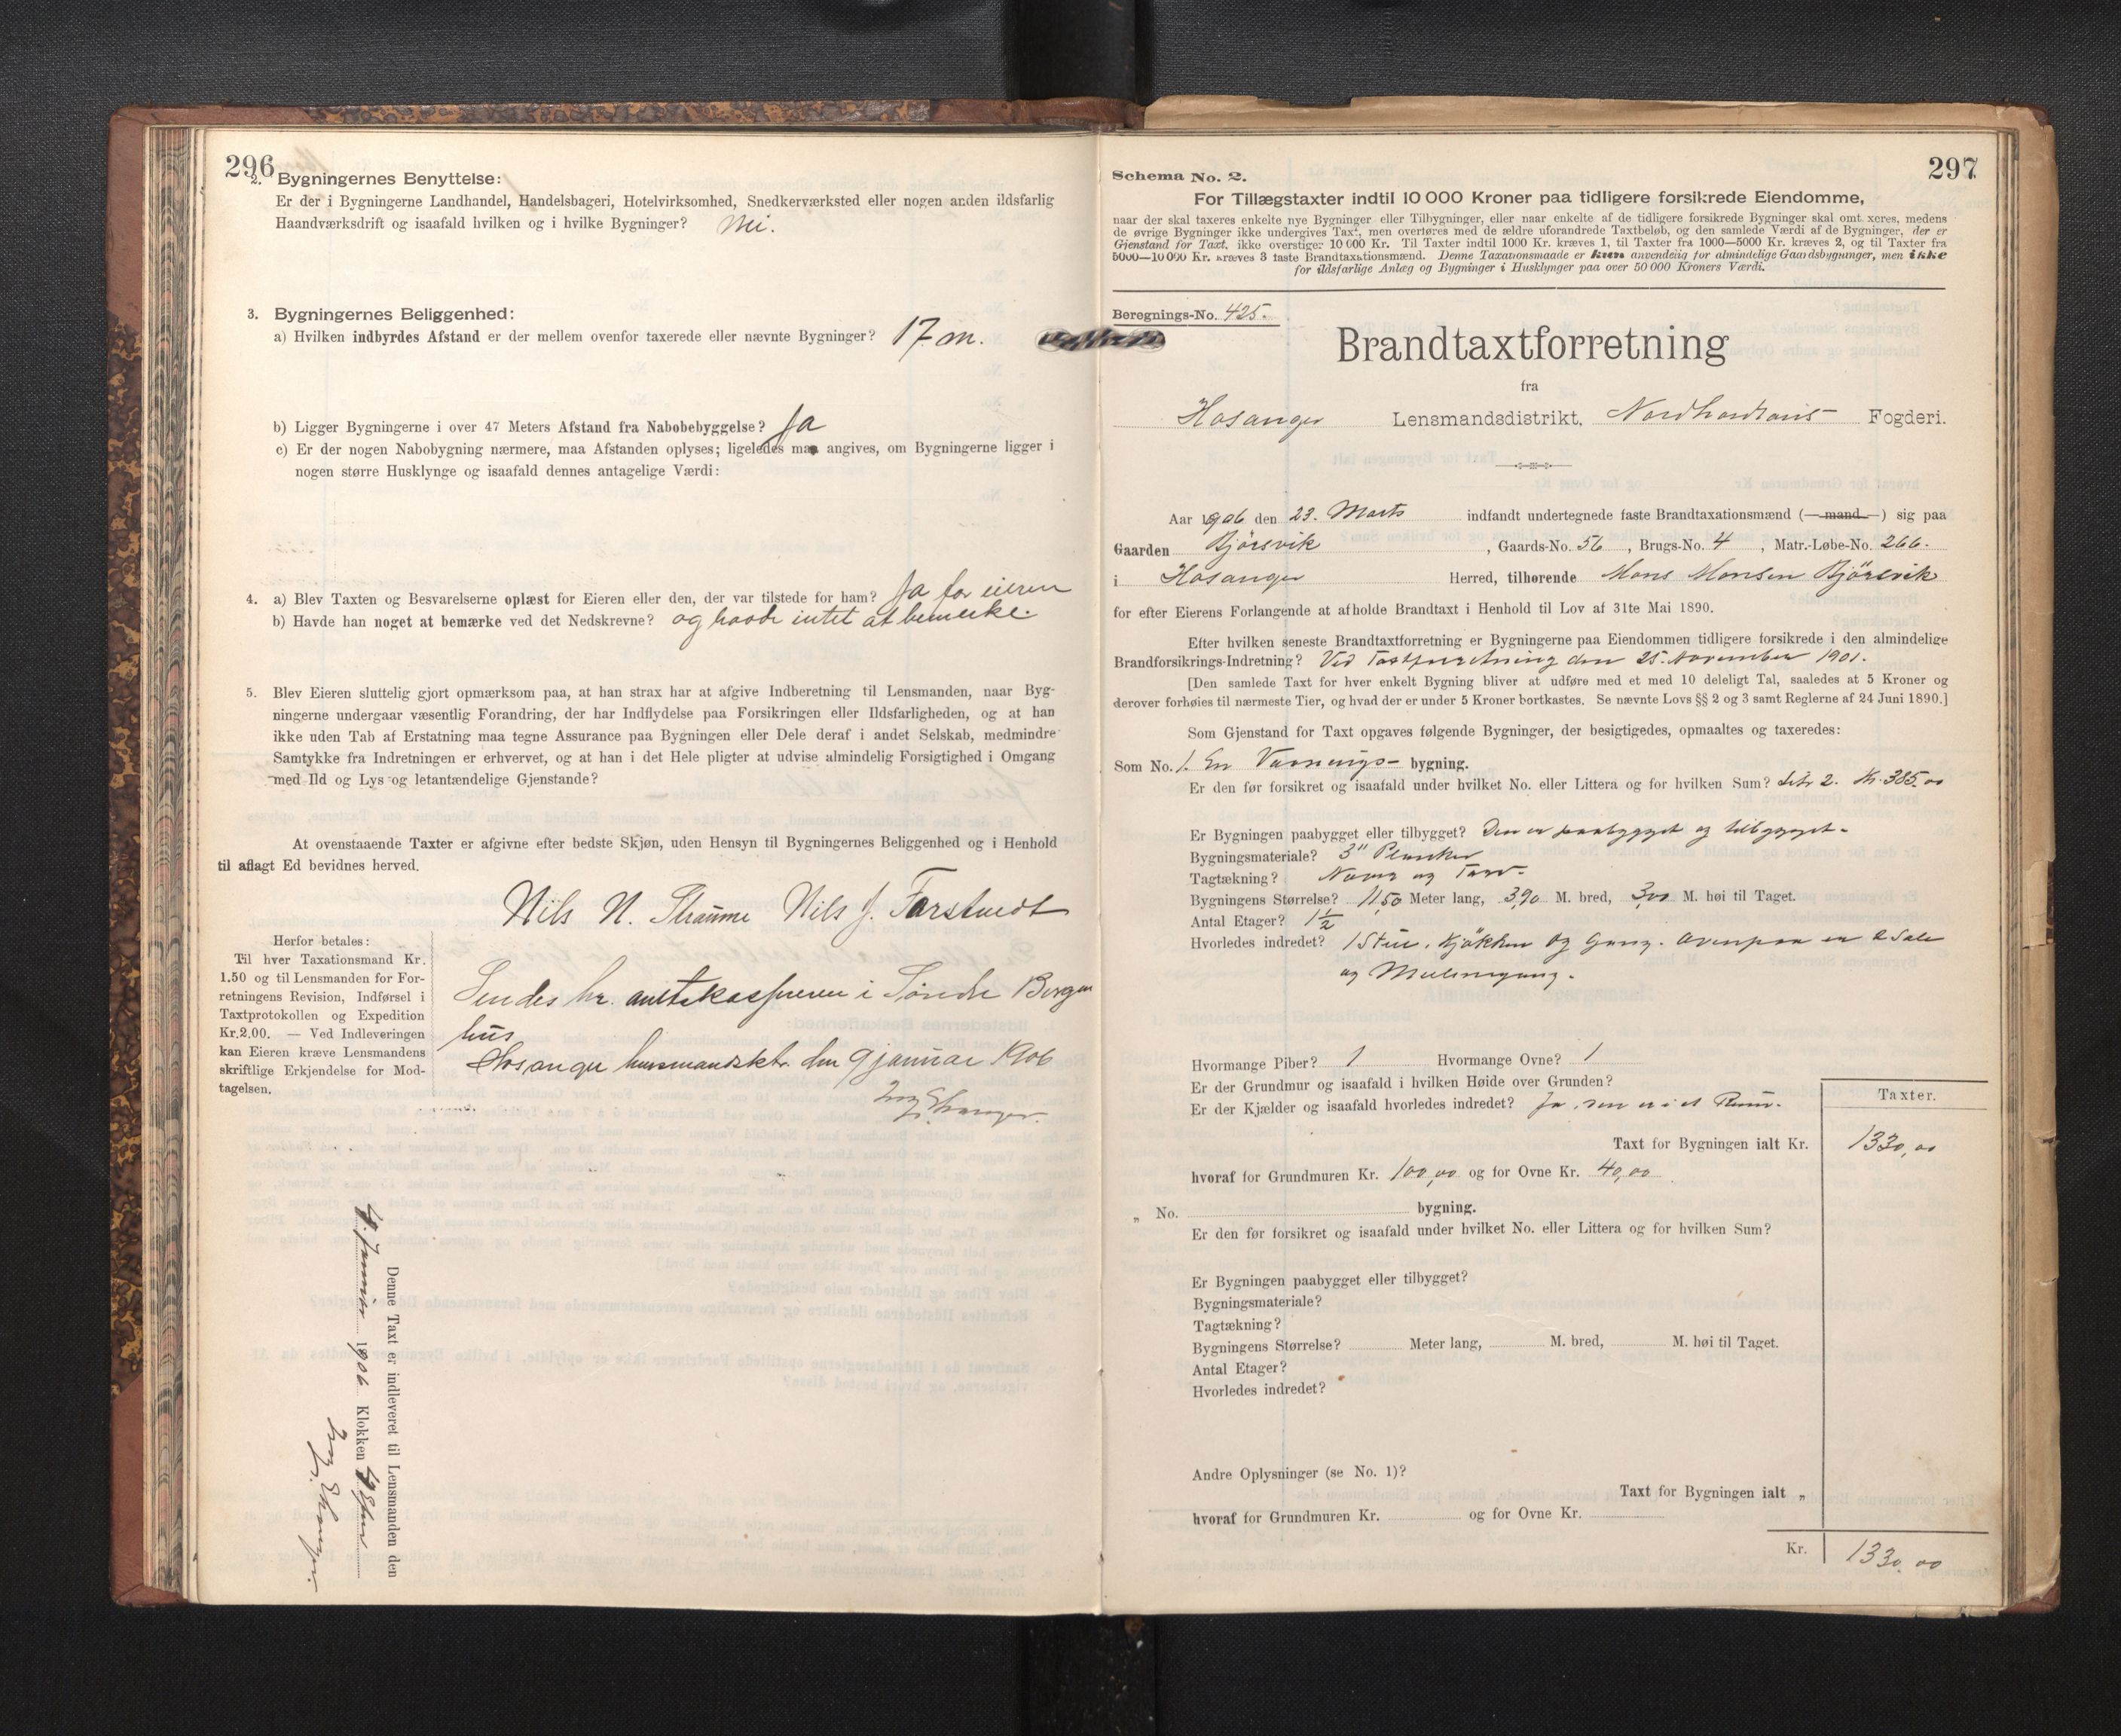 296
2. Bygningernes Benyttelse:
Er der i Bygningerne Landhandel, Handelsbageri, Hotelvirksomhed, Snedkerværksted eller nogen anden ildsfarlig
Haandværksdrift og isaafald hvilken og i hvilke Bygninger? Nei.
3. Bygningernes Beliggenhed:
a) Hvilken indbyrdes Afstand er der mellem ovenfor taxerede eller nævnte Bygninger? 17 m.
b) Ligger Bygningerne i over 47 Meters Afstand fra Nabobebyggelse? Ja
c) Er der nogen Nabobygning nærmere, maa Afstanden oplyses; ligeledes maa angives, om Bygningerne ligger i
nogen større Husklynge og isaafald dennes antagelige Værdi:
4. a) Blev Taxten og Besvarelserne oplæst for Eieren eller den, der var tilstede for ham? Ja for eieren
b) Havde han noget at bemærke ved det Nedskrevne? og havde intet at bemerke.
5. Blev Eieren sluttelig gjort opmærksom paa, at han strax har at afgive Indberetning til Lensmanden, naar Byg-
ningerne undergaar væsentlig Forandring, der har Indflydelse paa Forsikringen eller Ildsfarligheden, og at han
ikke uden Tab af Erstatning maa tegne Assurance paa Bygningen eller Dele deraf i andet Selskab, medmindre
Samtykke fra Indretningen er erhvervet, og at han i det Hele pligter at udvise almindelig Forsigtighed i Omgang
med Ild og Lys og letantændelige Gjenstande?
At ovenstaaende Taxter er afgivne efter bedste Skjøn, uden Hensyn til Bygningernes Beliggenhed og i Henhold
til aflagt Ed bevidnes herved.
Nils N. Straume Nils J.
Herfor betales:
Til hver Taxationsmand Kr.
1.50 og til Lensmanden for For-
retningens Revision, Indførsel i
Taxtprotokollen og Expedition
Kr. 2.00. — Ved Indleveringen
kan Eieren kræve Lensmandens
skriftlige Erkjendelse for Mod-
tagelsen.
Sendes hr. amtskasserer i Søndre Bergen
hus
Hosanger lensmandsktr. den 9 januar 1906
Denne Taxt er indleveret til Lensmanden den
4. Januar 1906 Klokken 4 Efm
297
Schema No. 2.
For Tillægstaxter indtil 10 000 Kroner paa tidligere forsikrede Eiendomme,
naar der skal taxeres enkelte nye Bygninger eller Tilbygninger, eller naar enkelte af de tidligere forsikrede Bygninger skal omtaxeres, medens
de øvrige Bygninger ikke undergives Taxt, men overføres med de ældre uforandrede Taxtbeløb, og den samlede Værdi af de Bygninger, der er
Gjenstand for Taxt, ikke overstiger 10 000 Kr. Til Taxter indtil 1000 Kr. kræves 1, til Taxter fra 1000—5000 Kr. kræves 2, og til Taxter fra
5000—10 000 Kr. kræves 3 faste Brandtaxationsmænd. Denne Taxationsmaade er kun anvendelig for almindelige Gaardsbygninger, men ikke
for ildsfarlige Anlæg og Bygninger i Husklynger paa over 50 000 Kroners Værdi.
Beregnings-No. 425.
Brandtaxtforretning
fra
Hosanger Lensmandsdistrikt, Nordhordlands Fogderi.
Aar 1906 den 23. Marts indfandt undertegnede faste Brandtaxationsmænd (—mand—) sig paa
Gaarden Bjørsvik, Gaards-No. 56, Brugs-No. 4, Matr.-Løbe-No. 266.
i Hosanger Herred, tilhørende Mons Monsen Bjørsvik
for efter Eierens Forlangende at afholde Brandtaxt i Henhold til Lov af 31te Mai 1890.
Efter hvilken seneste Brandtaxtforretning er Bygningerne paa Eiendommen tidligere forsikrede i den almindelige
Brandforsikrings-Indretning? Ved Taxtforretning den 25. November 1901.
[Den samlede Taxt for hver enkelt Bygning bliver at udføre med et med 10 deleligt Tal, saaledes at 5 Kroner og
derover forhøies til nærmeste Tier, og hvad der er under 5 Kroner bortkastes. Se nævnte Lovs §§ 2 og 3 samt Reglerne af 24 Juni 1890.]
Som Gjenstand for Taxt opgaves følgende Bygninger, der besigtigedes, opmaaltes og taxeredes:
Som No. 1. En Vaanings- bygning.
Er den før forsikret og isaafald under hvilket No. eller Littera og for hvilken Sum? Litr 2. Kr. 385.00
Er Bygningen paabygget eller tilbygget? Den er paabygget og tilbygget.
Bygningsmateriale? 3" Planker
Tagtækning? Næver og Torv.
Bygningens Størrelse? 11,50 Meter lang, 3,90 M. bred, 3,00 M. høi til Taget.
Antal Etager? 1½
Hvorledes indredet? 1 Stue, Kjøkken og Gang. Ovenpaa er 2 Sale
og Mellemgang.
Hvormange Piber? 1 Hvormange Ovne? 1
Er der Grundmur og isaafald i hvilken Høide over Grunden?
Er der Kjælder og isaafald hvorledes indredet? Ja, den er i et Rum.
Taxter.
Taxt for Bygningen ialt Kr. 1330,00
hvoraf for Grundmuren Kr. 100,00 og for Ovne Kr. 40,00
„ No. bygning.
Er den før forsikret og isaafald under hvilket No. eller Littera og for hvilken Sum?
Er Bygningen paabygget eller tilbygget?
Bygningsmateriale?
Tagtækning?
Bygningens Størrelse? Meter lang, M. bred, M. høi til Taget.
Antal Etager?
Hvorledes indredet?
Andre Oplysninger (se No. 1)?
Taxt for Bygningen ialt „
hvoraf for Grundmuren Kr. og for Ovne Kr.
Kr. 1330,00